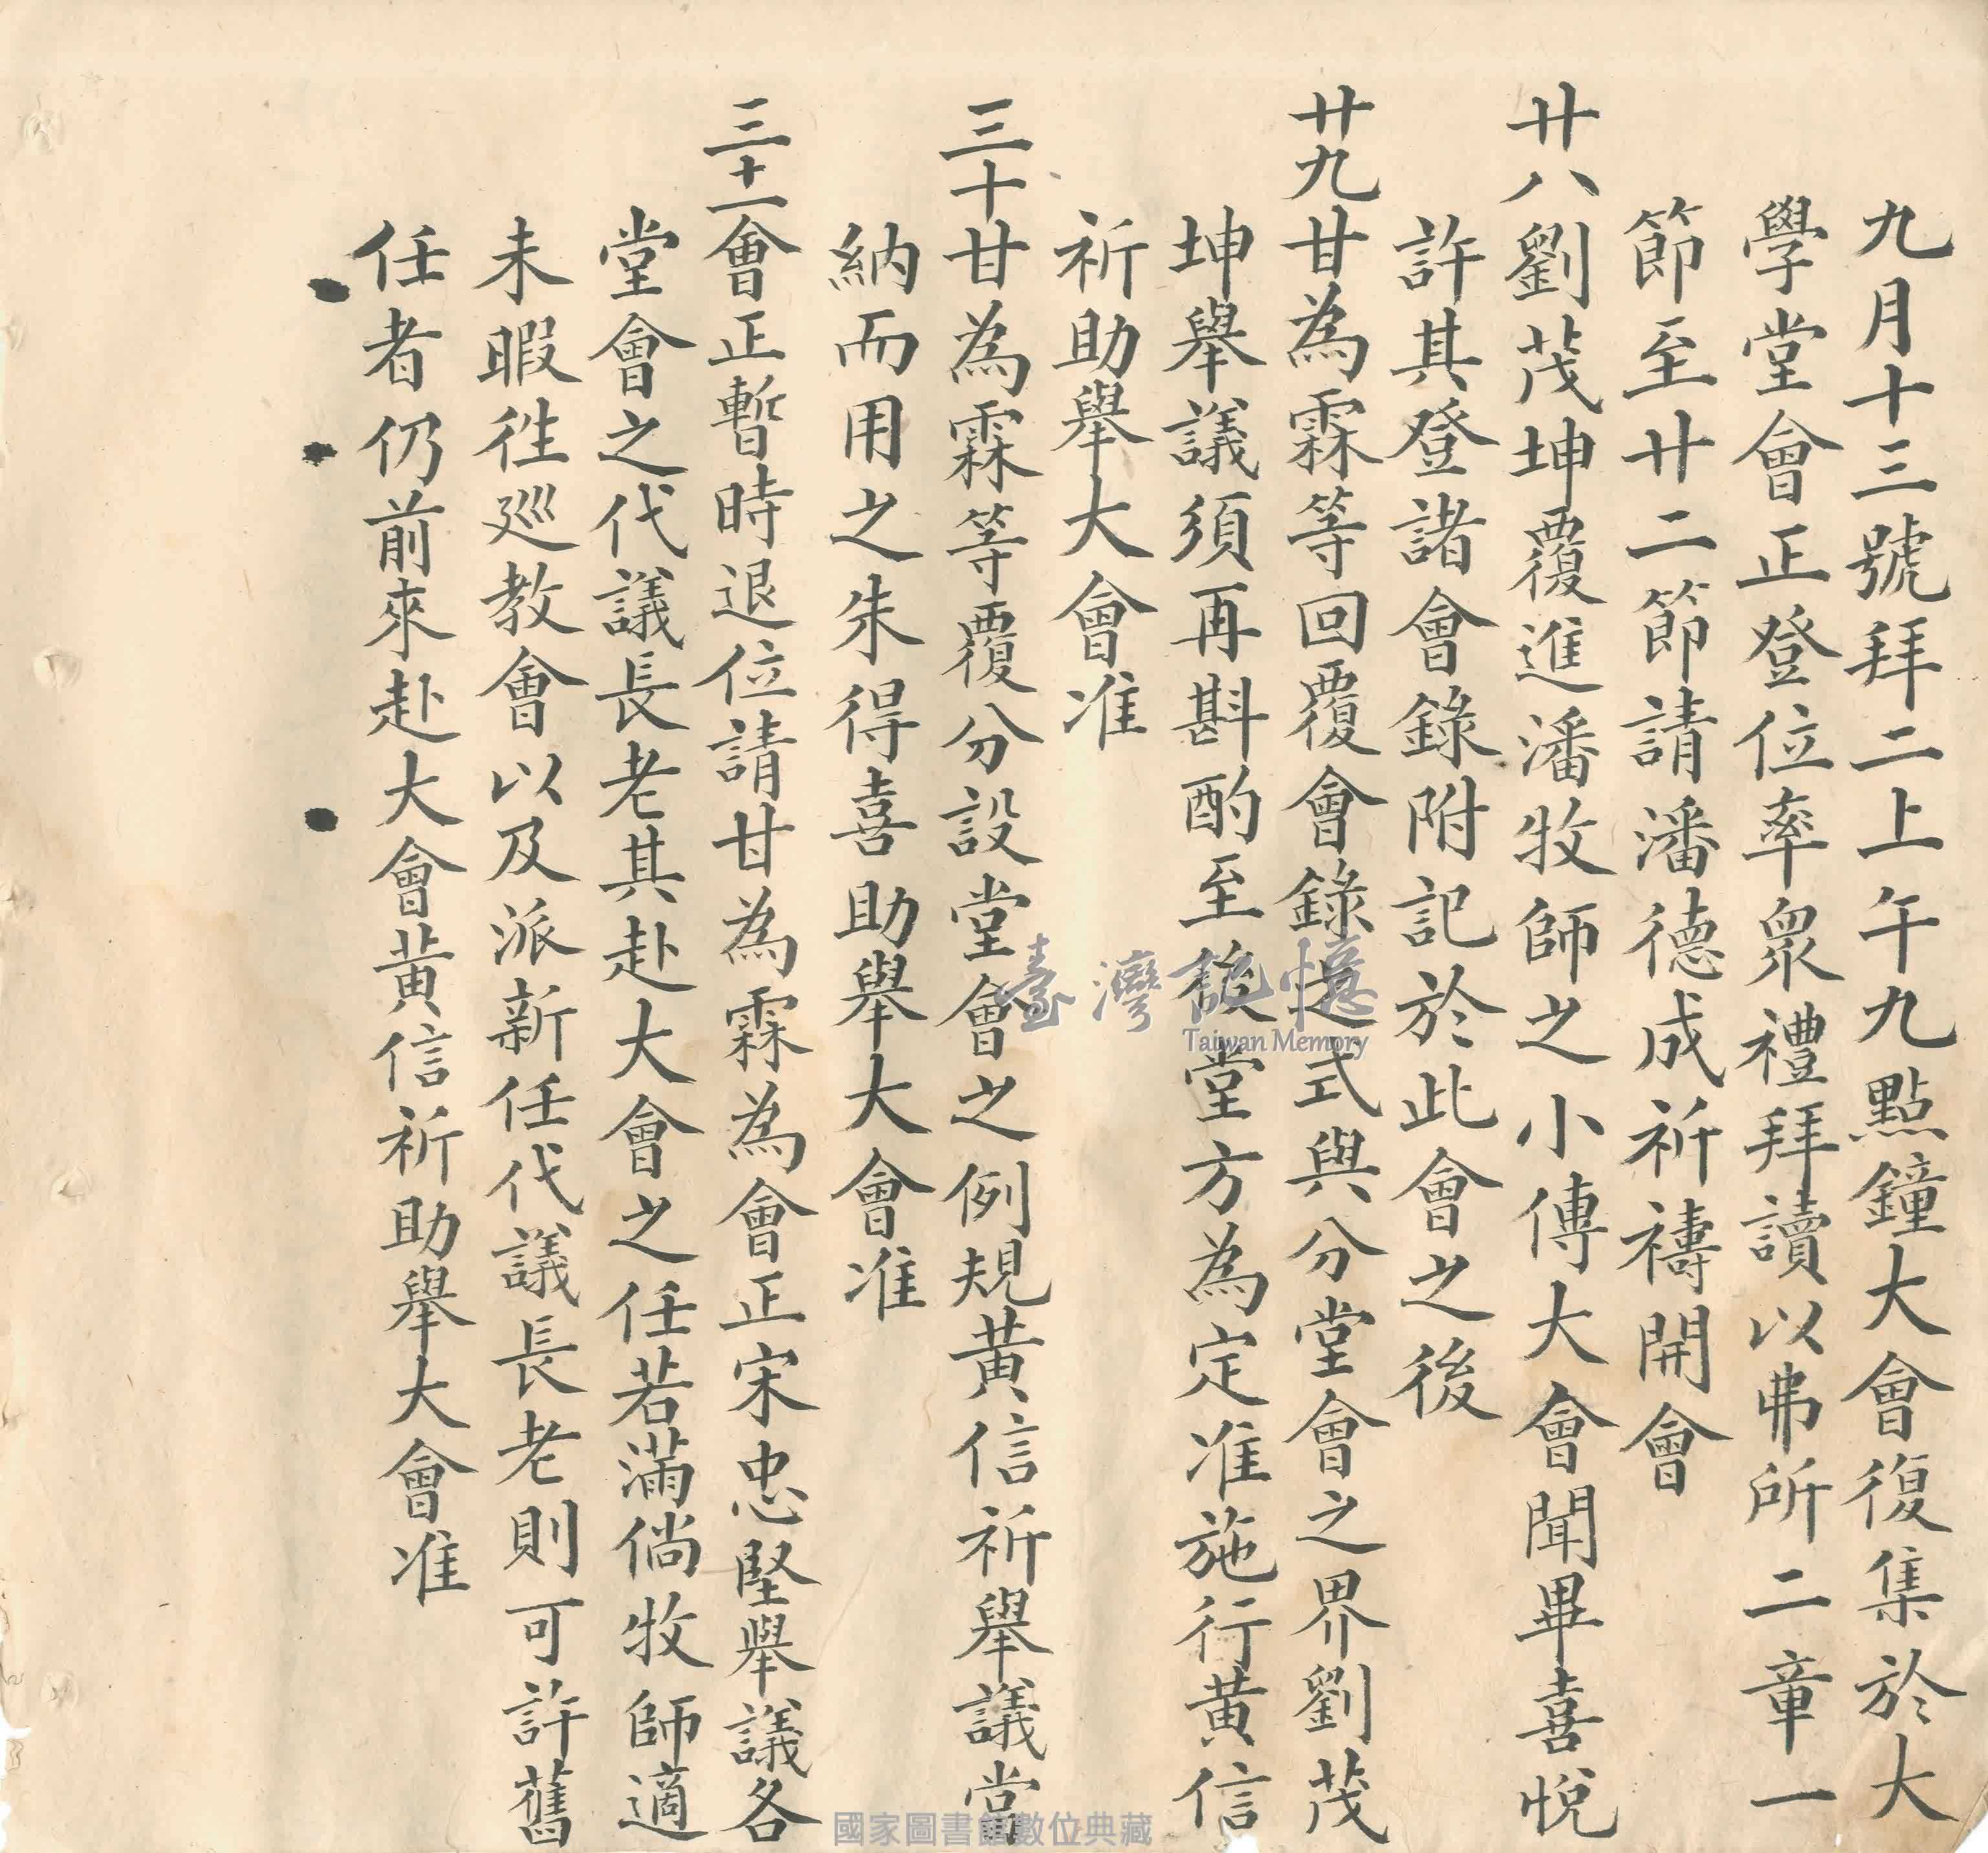 九月十三號拜二上午九點鐘大會復集於大
學堂會正登位率眾禮拜讀以弗所二章一
節至廿二節請潘德成祈禱開會
廿八劉茂坤覆進潘牧師之小傳大會聞畢喜悅
許其登諸會錄附記於此會之後
廿九甘為霖等回覆會錄之式與分堂會之界劉茂
坤舉議須再斟酌至後堂方為定准施行黃信
祈助舉大會准
三十甘為霖等覆分設堂會之例規黃信祈舉議當
納而用之朱得喜助舉大會准
三十一會正暫時退位請甘為霖為會正宋忠堅舉議各
堂會之代議長老其赴大會之任若滿倘牧師適
未暇往巡教會以及派新任代議長老則可許舊
任者仍前來赴大會黃信祈助舉大會准
臺灣記憶
Taiwan Memory
國家圖書館數位典藏